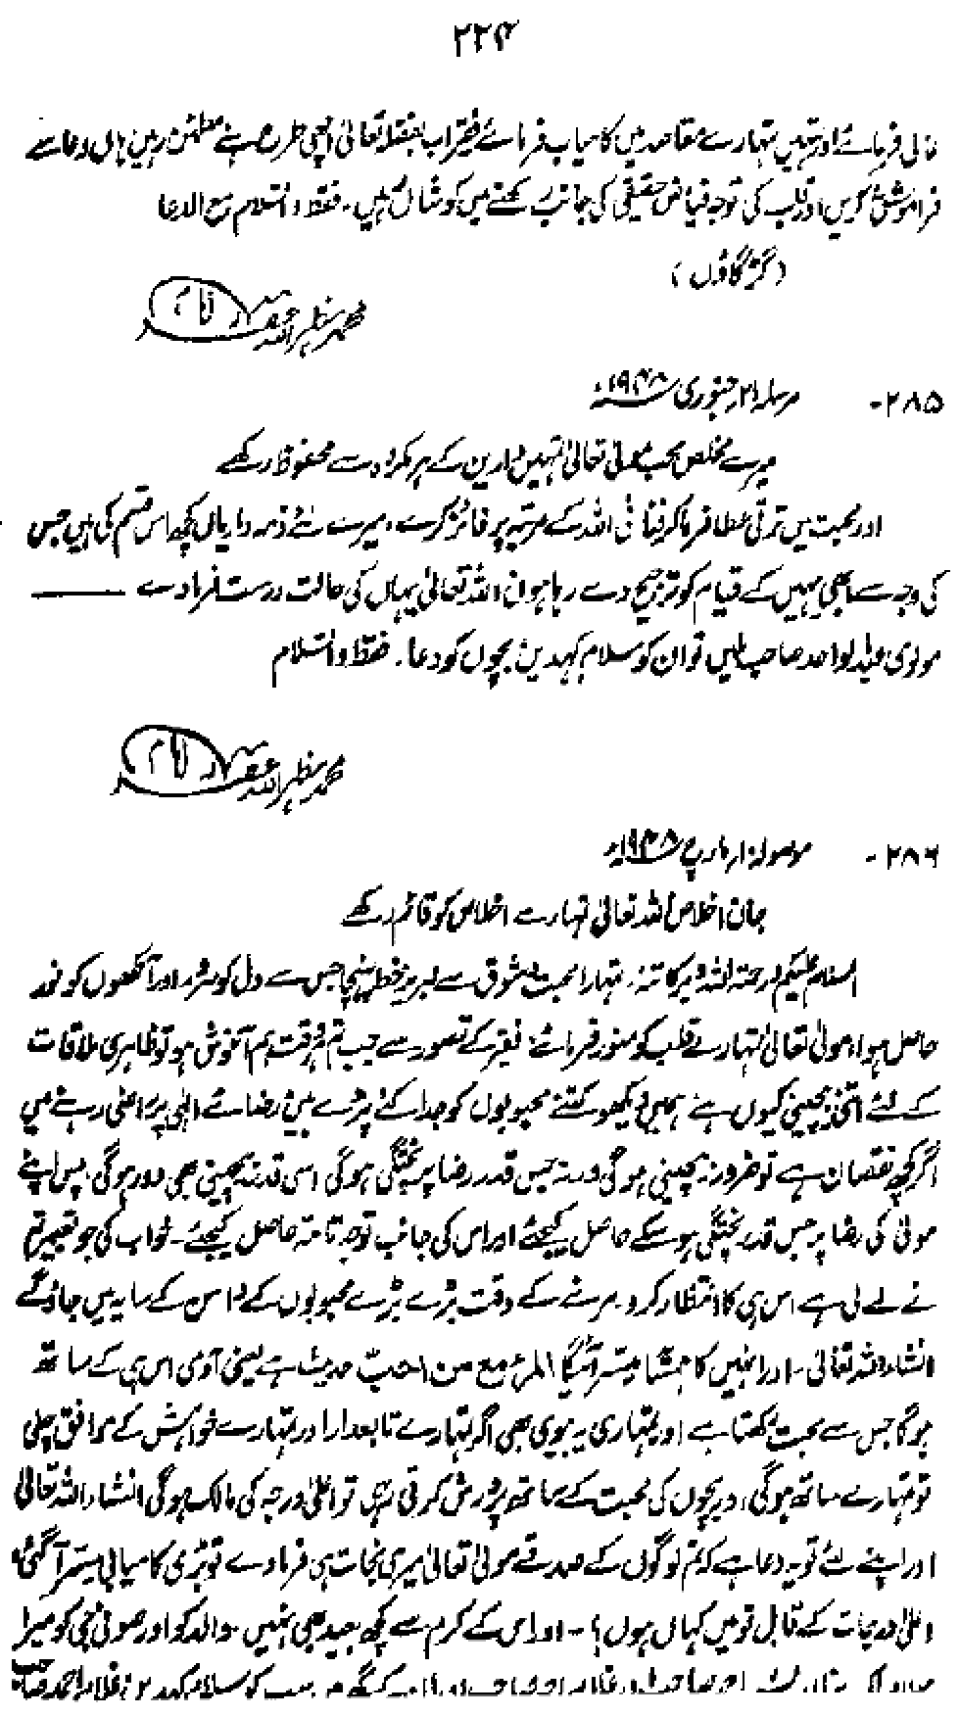 ۲۲۴
عالی فرمائے اور تمہیں تمہارے مقاصد میں کامیاب فرمائے فقیر اب بفضلہ تعالیٰ اچھی طرح ہے مطمئن رہیں ہاں دعا سے
فراموش نہ کریں اور قلب کی توجہ فیاض حقیقی کی جانب رکھنے میں کوشاں رہیں ۔ فقط والسلام مع الدعا
(گڑگاؤں)
محمد مظہر اللہ غفرلہ امام
۲۸۵- مرسلہ ۲۱؍ جنوری ۱۹۴۸ء
میرے مخلص محب مولیٰ تعالیٰ تمہیں دارین کے ہر مکروہ سے محفوظ رکھے
اور محبت میں ترقی عطا فرما کر فنا فی اللہ کے مرتبہ پر فائز کرے ، میرے لئے ذمہ داریاں کچھ اس قسم کی ہیں جس
کی وجہ سے ابھی یہیں کے قیام کو ترجیح دے رہا ہوں اللہ تعالیٰ یہاں کی حالت درست فرما دے ———
مولوی عبدالواحد صاحب ملیں تو ان کو سلام کہدیں بچوں کو دعا . فقط والسلام
محمد مظہر اللہ غفرلہ امام
۲۸۶- موصولہ ۱۰؍ مارچ ۱۹۴۸ء
جان اخلاص اللہ تعالیٰ تمہارے اخلاص کو قائم رکھے
السلام علیکم ورحمۃ اللہ وبرکاتہ ، تمہارا محبت و شوق سے لبریز خط پہنچا جس سے دل کو سرور اور آنکھوں کو نور
حاصل ہوا ، مولیٰ تعالیٰ تمہارے قلب کو منور فرمائے ، فقیر کے تصور سے جب تم ہر وقت ہم آغوش ہو تو ظاہری ملاقات
کے لئے اتنی بے چینی کیوں ہے ہمیں دیکھو کتنے محبوبوں کو جدا کئے پڑے ہیں رضائے الٰہی پر راضی رہنے میں
اگر کچھ نقصان ہے تو ضرور بے چینی ہوگی ورنہ جس قدر رضا پر پختگی ہوگی اسی قدر بے چینی بھی دور ہوگی پس اپنے
مولیٰ کی رضا پر جس قدر پختگی ہو سکے حاصل کیجئے اور اس کی جانب توجہ تامہ حاصل کیجئے ۔ خواب کی جو تعبیر تم
نے لے لی ہے اس ہی کا انتظار کرو مرنے کے وقت بڑے بڑے محبوبوں کے دامن کے سایہ میں جاؤ گے
انشاء اللہ تعالیٰ ۔ اور انہیں کا ہمسایہ میسر آئیگا المرء مع من احب حدیث ہے یعنی آدمی اس ہی کے ساتھ
ہوگا جس سے محبت رکھتا ہے اور تمہاری یہ بیوی بھی اگر تمہارے تابعدار اور تمہارے خواہش کے موافق چلی
تو تمہارے ساتھ ہوگی ، اور بچوں کی محبت کے ساتھ پرورش کرتی رہی تو اعلیٰ درجہ کی مالک ہوگی انشاء اللہ تعالیٰ
اور اپنے لئے تو یہ دعا ہے کہ تم لوگوں کے صدقے مولیٰ تعالیٰ میری نجات ہی فرما دے تو بڑی کامیابی میسر آگئی
اعلیٰ درجات کے قابل تو میں کہاں ہوں ؟ ۔ اور اس کے کرم سے کچھ بعید بھی نہیں ۔ والد کو اور صوفی جی کو میرا
سب کو سلام کہدیں غلام احمد صاحب